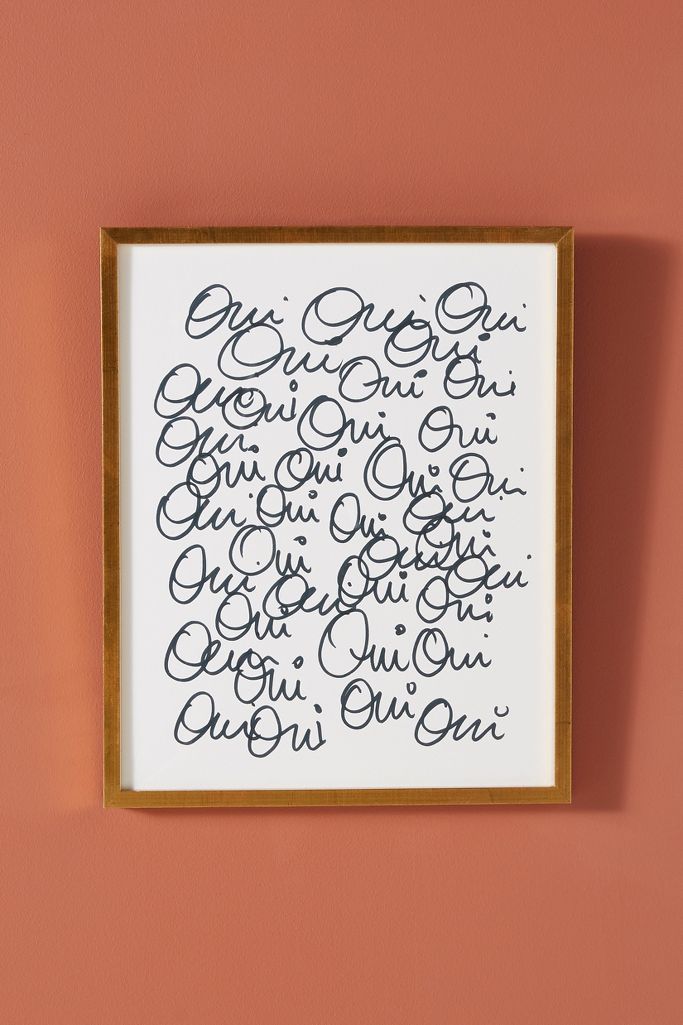 Oui Oui Oui
Oui Oui
Oui Oui
Oui Oui
Oui Oui
Oui
Oui Oui Oui Oui
Oui Oui Oui Oui
Oui Oui Oui
Oui Oui Oui
Oui Oui
Oui
Oui Oui Oui
Oui Oui
Oui Oui Oui